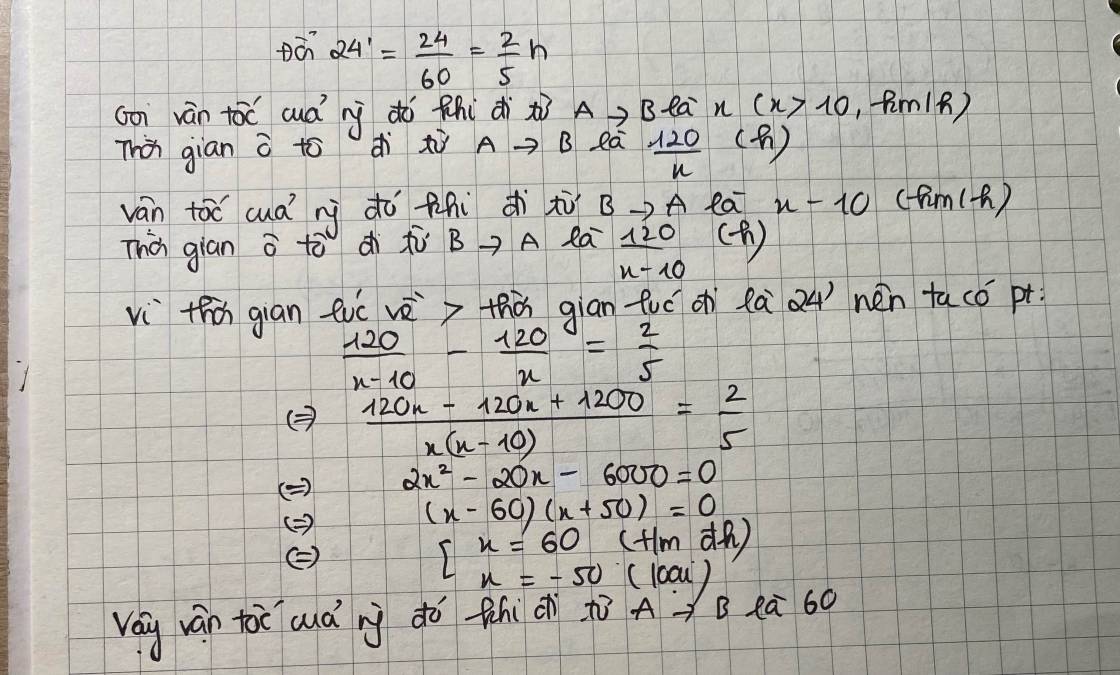 Đổi 24' = 24/60 = 2/5 h
Gọi vận tốc của ng` đó khi đi từ A → B là x (x > 10, km/h)
Thời gian ô tô đi từ A → B là 120/x (h)
Vận tốc của ng` đó khi đi từ B → A là x - 10 (km/h)
Thời gian ô tô đi từ B → A là 120/(x-10) (h)
Vì thời gian lúc về > thời gian lúc đi là 24' nên ta có pt:
120/(x-10) - 120/x = 2/5
(=) (120x - 120x + 1200)/(x(x-10)) = 2/5
(=) 2x² - 20x - 6000 = 0
(=) (x - 60)(x + 50) = 0
(=) [ x = 60 (t/m đk)
x = -50 (loại)
Vậy vận tốc của ng` đó khi đi từ A → B là 60